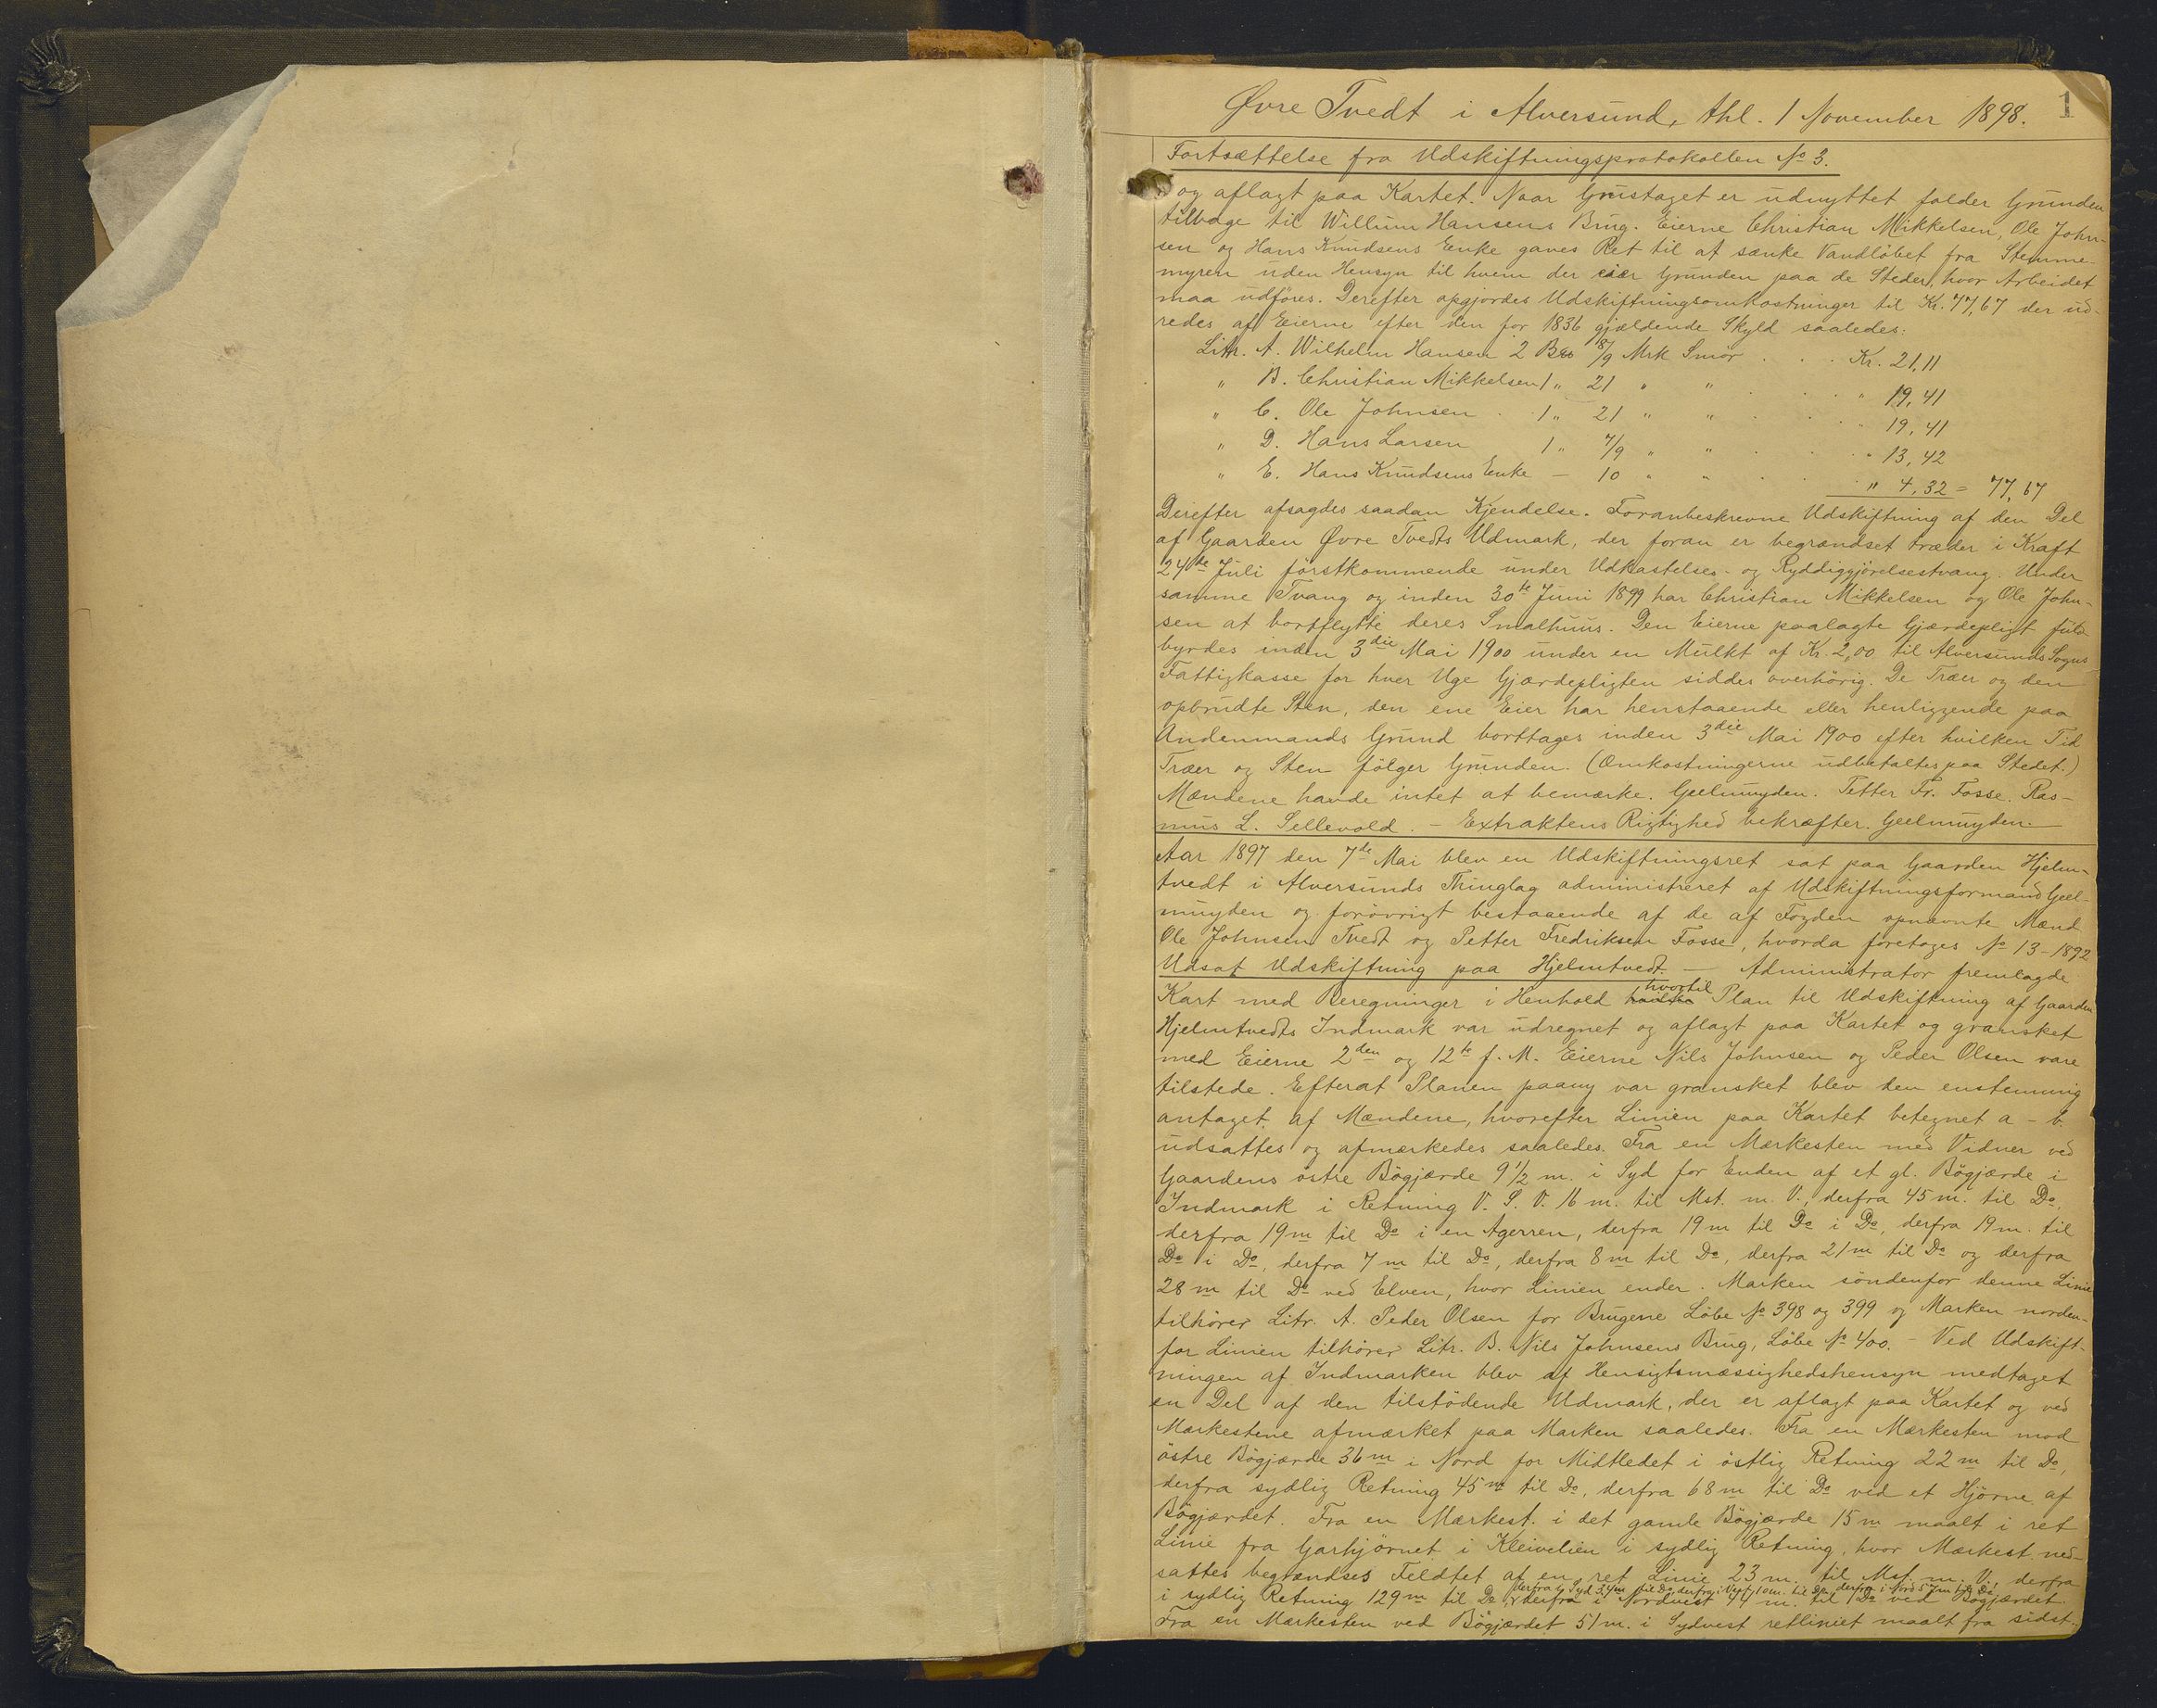 Øvre Tvedt i Alversund, thl. 1 November 1898. 1
Fortsættelse fra Udskiftningsprotokollen No 3.
og aflagt paa Kartet. Naar Grustaget er udnyttet falder Grunden
tilbage til Willum Hansens Brug. Eierne Christian Mikkelsen, Ole John-
sen og Hans Knudsens Enke gaves Ret til at sænke Vandløbet fra Stemme-
myren uden Hensyn til hvem der eier Grunden paa de Steder, hvor Arbeidet
maa udføres. Derefter opgjordes Udskiftningsomkostninger til Kr. 77,67 der ud-
redes af Eierne efter den før 1836 gjældende Skyld saaledes:
Litr. A. Wilhelm Hansen 2 8/9 Mrk Smør . . . Kr. 21,11
" B. Christian Mikkelsen 1 " 21 " " . . . " 19,41
" C. Ole Johnsen . 1 " 21 " " . . . 19,41
" D. Hans Larsen 1 " 7/9 " " . . . " 13,42
" E. Hans Knudsens Enke — 10 " " . . . " 4,32 = 77,67
Derefter afsagdes saadan Kjendelse. Foranbeskrevne Udskiftning af den Del
af Gaarden Øvre Tvedts Udmark, der foran er begrændset træder i Kraft
24de Juli førstkommende under Udkastelses- og Ryddiggjørelsestvang. Under
samme Tvang og inden 30te Juni 1899 har Christian Mikkelsen og Ole John-
sen at bortflytte deres Smalhuus. Den Eierne paalagte Gjærdepligt fuld-
byrdes inden 3die Mai 1900 under en Mulkt af Kr. 2,00 til Alversunds Sogns
Fattigkasse for hver Uge Gjærdepligten siddes overhørig. De Træer og den
opbrudte Sten, den ene Eier har henstaaende eller henliggende paa
Andenmands Grund borttages inden 3die Mai 1900 efter hvilken Tid
Træer og Sten følger Grunden. (Omkostningerne udbetaltes paa Stedet.)
Mændene havde intet at bemærke. Geelmuyden. Petter Fr. Fosse. Ras-
mus L. Sellevold. — Extraktens Rigtighed bekræfter. Geelmuyden.
Aar 1897 den 7de Mai blev en Udskiftningsret sat paa Gaarden Hjelm-
tvedt i Alversunds Thinglag administreret af Udskiftningsformand Geel-
muyden og forøvrigt bestaaende af de af Fogden opnævnte Mænd
Ole Johnsen Tvedt og Petter Fredriksen Fosse, hvorda foretoges No 13-1892
Udsat Udskiftning paa Hjelmtvedt. — Administrator fremlagde
Kart med Beregninger i Henhold hvortil Plan til Udskiftning af Gaarden
Hjelmtvedts Indmark var udregnet og aflagt paa Kartet og gransket
med Eierne 2den og 12te f. M. Eierne Nils Johnsen og Peder Olsen vare
tilstede. Efterat Planen paany var gransket blev den enstemmig
antaget af Mændene, hvorefter Linien paa Kartet betegnet a - b.
udsattes og afmærkedes saaledes. Fra en Mærkesten med Vidner ved
Gaardens østre Bøgjærde 9 1/2 m. i Syd for Enden af et gl. Bøgjærde i
Indmark i Retning V. S. V. 16 m. til Mst. m. V., derfra 45 m. til Do.
derfra 19 m til Do i en Agerren, derfra 19 m til Do i Do, derfra 19 m. til
Do i Do, derfra 7 m til Do, derfra 8 m til Do, derfra 21 m til Do og derfra
28 m til Do ved Elven, hvor Linien ender. Marken søndenfor denne Linie
tilhører Litr. A. Peder Olsen for Brugene Løbe No 398 og 399 og Marken norden-
for Linien tilhører Litr. B. Nils Johnsens Brug, Løbe No 400. — Ved Udskift-
ningen af Indmarken blev af Hensigtsmæssighedshensyn medtaget
en Del af den tilstødende Udmark, der er aflagt paa Kartet og ved
Mærkestene afmærket paa Marken saaledes. Fra en Mærkesten mod
østre Bøgjærde 36 m i Nord for Midtledet i østlig Retning 22 m til Do,
derfra sydlig Retning 45 m til Do, derfra 68 m til Do ved et Hjørne af
Bøgjærdet. Fra en Mærkest. i det gamle Bøgjærde 15 m maalt i ret
Linie fra Garhjørnet i Kleivelien i sydlig Retning, hvor Mærkest. ned-
sattes begrændses Feldtet af en ret Linie 23 m. til Mst. m. V., derfra
derfra i Syd 34 m til Do, derfra i Vest 10 m. til Do, derfra i Nord 57 m til Do,
i sydlig Retning 129 m til Do, derfra i Nordvest 44 m. til Do ved Bøgjærdet.
Fra en Mærkesten ved Bøgjærdet 51 m. i Sydvest retliniet maalt fra sidst-